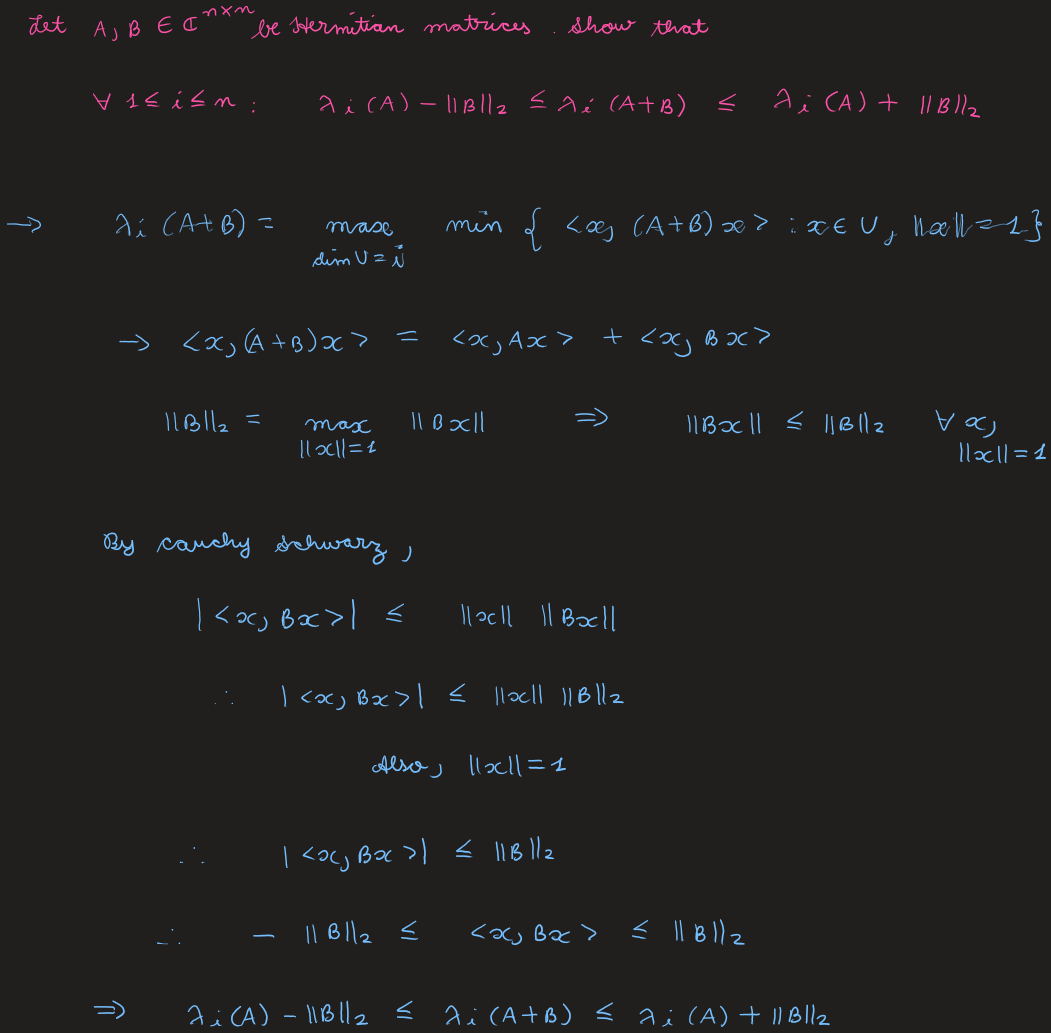 Let A, B ∈ ℂ^{n×n} be Hermitian matrices. Show that
∀ 1 ≤ i ≤ n : λi (A) − ||B||₂ ≤ λi (A+B) ≤ λi (A) + ||B||₂
→ λi (A+B) = max min { <x, (A+B) x> : x ∈ U, ||x|| = 1}
dim U = i
→ <x, (A+B)x> = <x, Ax> + <x, Bx>
||B||₂ = max ||Bx|| ⇒ ||Bx|| ≤ ||B||₂ ∀ x,
||x||=1 ||x|| = 1
By cauchy schwarz,
|<x, Bx>| ≤ ||x|| ||Bx||
∴ |<x, Bx>| ≤ ||x|| ||B||₂
Also, ||x|| = 1
∴ |<x, Bx>| ≤ ||B||₂
∴ − ||B||₂ ≤ <x, Bx> ≤ ||B||₂
⇒ λi (A) − ||B||₂ ≤ λi (A+B) ≤ λi (A) + ||B||₂